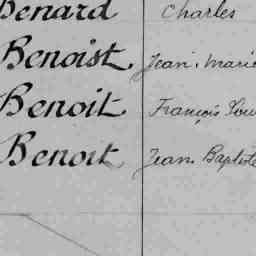 Benard Charles
Benoist Jean Marie
Benoit François Lou
Benoit Jean Baptiste